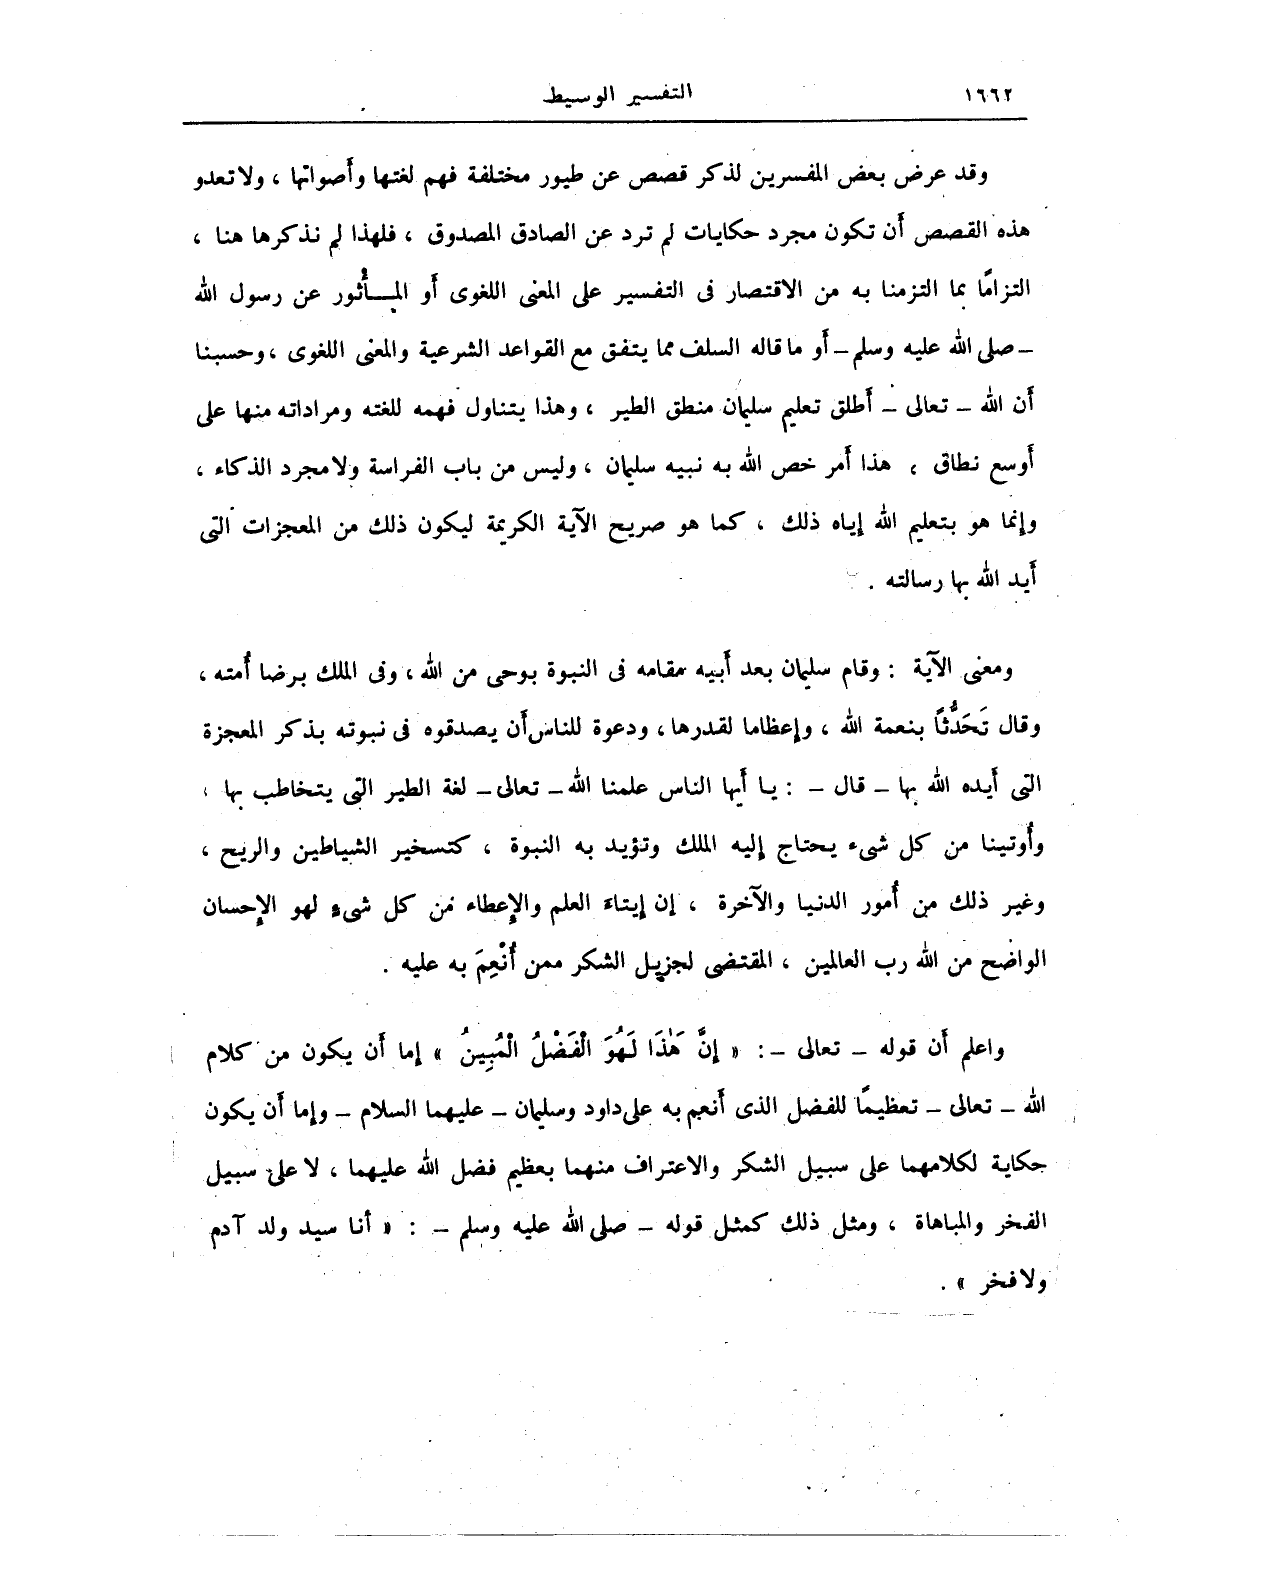 ١٦٦٢ التفسير الوسيط
وقد عرض بعض المفسرين لذكر قصص عن طيور مختلفة فهم لغتها وأصواتها ، ولا تعدو
هذه القصص أن تكون مجرد حكايات لم ترد عن الصادق المصدوق ، فلهذا لم نذكرها هنا ،
التزامًا بما التزمنا به من الاقتصار فى التفسير على المعنى اللغوى أو المأثور عن رسول الله
– صلى الله عليه وسلم – أو ما قاله السلف مما يتفق مع القواعد الشرعية والمعنى اللغوى ، وحسبنا
أن الله – تعالى – أطلق تعليم سليمان منطق الطير ، وهذا يتناول فهمه للغته ومراداته منها على
أوسع نطاق ، هذا أمر خص الله به نبيه سليمان ، وليس من باب الفراسة ولا مجرد الذكاء ،
وإنما هو بتعليم الله إياه ذلك ، كما هو صريح الآية الكريمة ليكون ذلك من المعجزات التى
أيد الله بها رسالته .
ومعنى الآية : وقام سليمان بعد أبيه مقامه فى النبوة بوحى من الله ، وفى الملك برضا أُمته ،
وقال تَحَدُّثًا بنعمة الله ، وإعظاما لقدرها ، ودعوة للناس أن يصدقوه فى نبوته بذكر المعجزة
التى أيده الله بها – قال – : يا أيها الناس علمنا الله – تعالى – لغة الطير التى يتخاطب بها ،
وأُوتينا من كل شىء يحتاج إليه الملك وتؤيد به النبوة ، كتسخير الشياطين والريح ،
وغير ذلك من أُمور الدنيا والآخرة ، إن إيتاءَ العلم والإعطاء من كل شىءٍ لهو الإحسان
الواضح من الله رب العالمين ، المقتضى لجزيل الشكر ممن أُنْعِمَ به عليه .
واعلم أن قوله – تعالى – : « إِنَّ هَٰذَا لَهُوَ الْفَضْلُ الْمُبِينُ » إما أن يكون من كلام
الله – تعالى – تعظيمًا للفضل الذى أنعم به على داود وسليمان – عليهما السلام – وإما أن يكون
حكاية لكلامهما على سبيل الشكر والاعتراف منهما بعظيم فضل الله عليهما ، لا على سبيل
الفخر والمباهاة ، ومثل ذلك كمثل قوله – صلى الله عليه وسلم – : « أنا سيد ولد آدم
ولا فخر » .